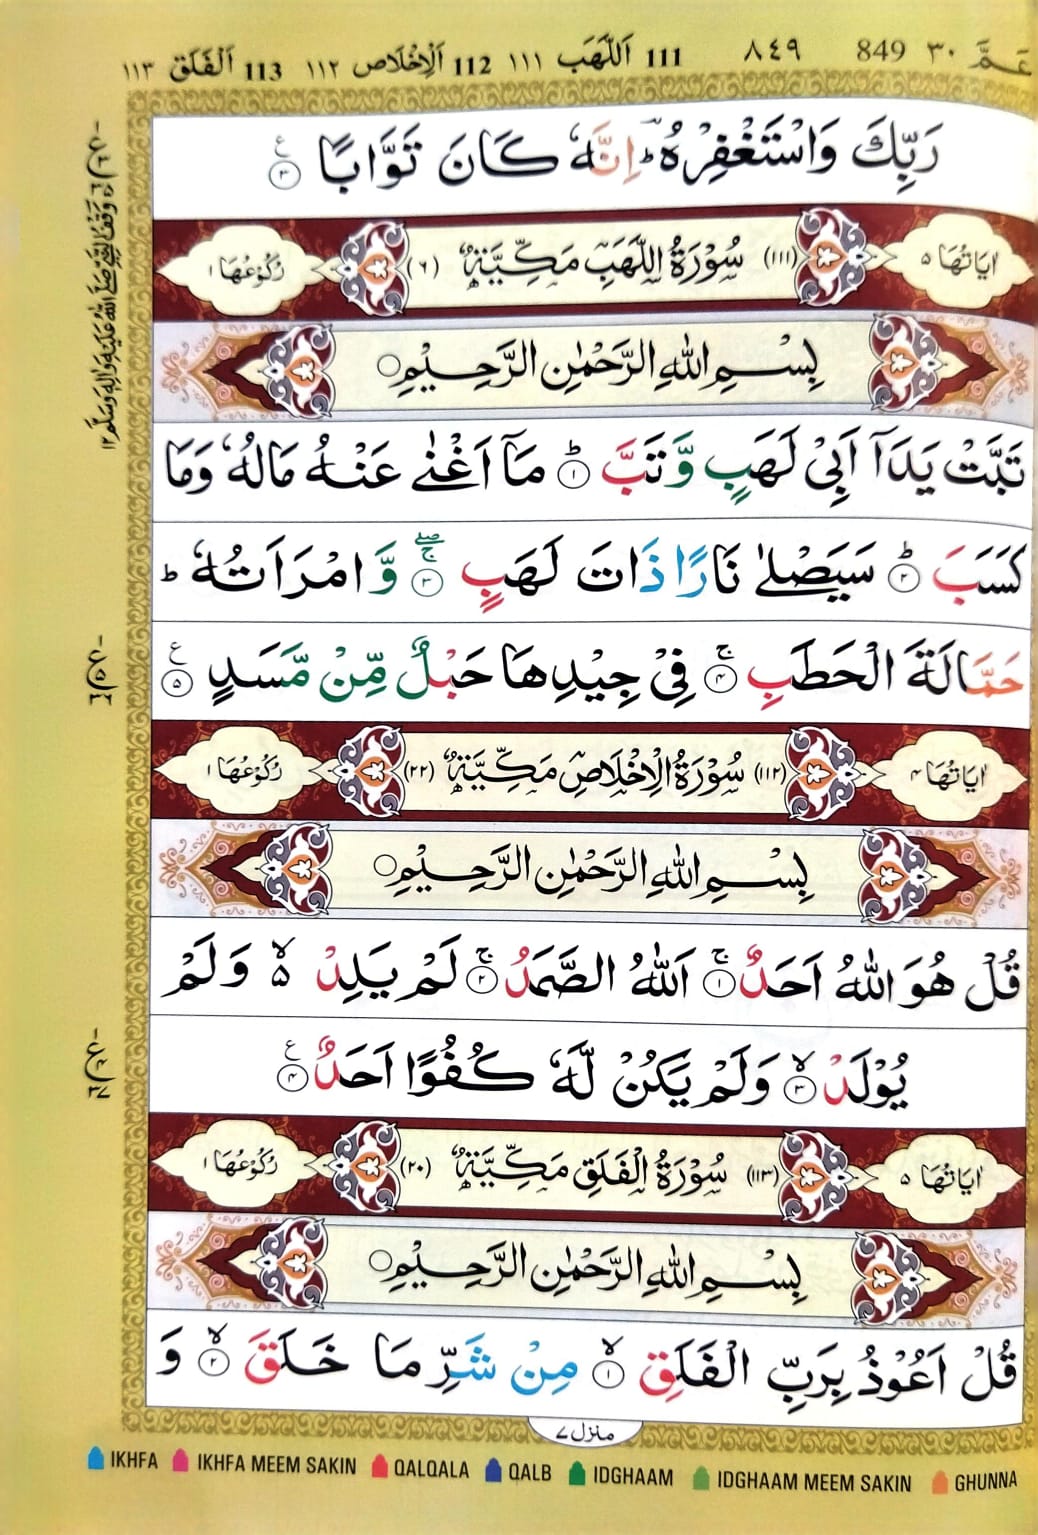 عَمَّ ٣٠ 849 ٨٤٩ 111 اَللَّهَب ١١١ 112 اَلْاِخْلَاص ١١٢ 113 اَلْفَلَق ١١٣
رَبِّكَ وَاسْتَغْفِرْهُ ؕ اِنَّهٗ كَانَ تَوَّابًا ۝٣ ع
اٰيَاتُهَا ٥ (١١١) سُوْرَةُ اللَّهَبِ مَكِّيَّةٌ (٦) رُكُوْعُهَا ١
بِسْمِ اللّٰهِ الرَّحْمٰنِ الرَّحِيْمِ ۝
تَبَّتْ يَدَاۤ اَبِىْ لَهَبٍ وَّتَبَّ ؕ‏ ۝١ مَاۤ اَغْنٰى عَنْهُ مَالُهٗ وَمَا
كَسَبَ ؕ‏ ۝٢ سَيَصْلٰى نَارًا ذَاتَ لَهَبٍ ۖۚ ۝٣ وَّامْرَاَتُهٗ ؕ
حَمَّالَةَ الْحَطَبِ ۚ‏ ۝٤ فِىْ جِيْدِهَا حَبْلٌ مِّنْ مَّسَدٍ ۝٥ ع
اٰيَاتُهَا ٤ (١١٢) سُوْرَةُ الْاِخْلَاصِ مَكِّيَّةٌ (٢٢) رُكُوْعُهَا ١
بِسْمِ اللّٰهِ الرَّحْمٰنِ الرَّحِيْمِ ۝
قُلْ هُوَ اللّٰهُ اَحَدٌ ۚ‏ ۝١ اَللّٰهُ الصَّمَدُ ۚ‏ ۝٢ لَمْ يَلِدْ ۙ۬ وَلَمْ
يُوْلَدْ ۙ‏ ۝٣ وَلَمْ يَكُنْ لَّهٗ كُفُوًا اَحَدٌ ۝٤ ع
اٰيَاتُهَا ٥ (١١٣) سُوْرَةُ الْفَلَقِ مَكِّيَّةٌ (٢٠) رُكُوْعُهَا ١
بِسْمِ اللّٰهِ الرَّحْمٰنِ الرَّحِيْمِ ۝
قُلْ اَعُوْذُ بِرَبِّ الْفَلَقِ ۙ‏ ۝١ مِنْ شَرِّ مَا خَلَقَ ۙ‏ ۝٢ وَ
منزل ٧
IKHFA IKHFA MEEM SAKIN QALQALA QALB IDGHAAM IDGHAAM MEEM SAKIN GHUNNA